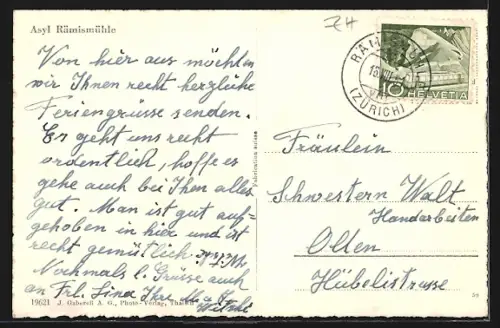 Asyl Rämismühle
ZH
Von hier aus möchten
wir Ihnen recht herzliche
Feriengrüsse senden.
Es geht uns recht
ordentlich, hoffe es
gehe auch bei Ihen alles
gut. Man ist gut auf-
gehoben in hier und ist
recht gemütlich
Nochmals l. Grüsse auch
an Frl. Lina Ihre
19621 J. Gaberell A. G., Photo - Verlag, Thalwil
Fabrication suisse
(ZÜRICH)
10 HELVETIA
Fräulein
Schwestern Walt
Handarbeiten
Olten
Hübelistrasse